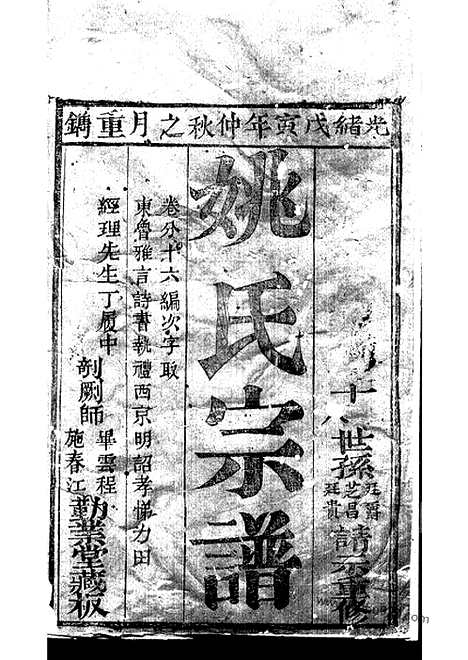 光緒戊寅年仲秋之月重鐫
十八世孫
芝昌
請示重修
姚氏宗譜
卷分十六編次字取
東魯雅言詩書執禮西京明詔孝悌力田
經理先生丁履中
剞劂師
畢雲程
施春江
勤業堂藏板